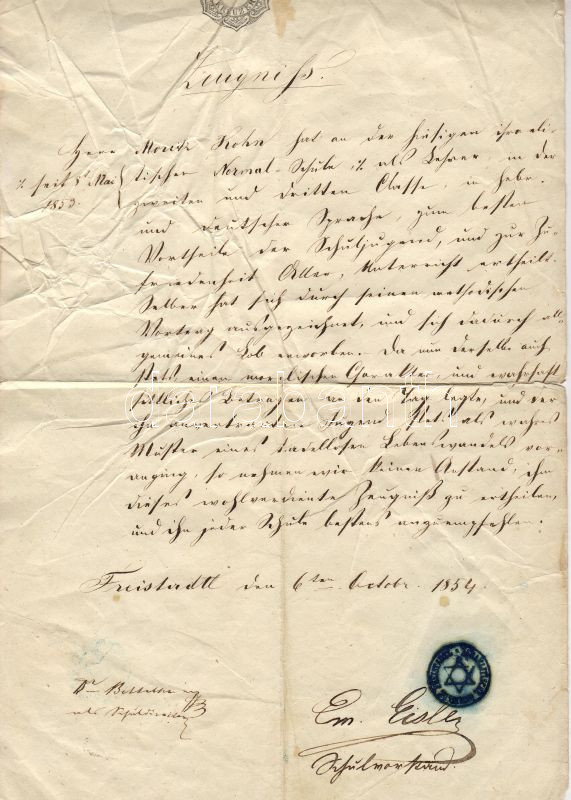 KREUZER
Zeugniß.
Herr Moritz Kohn hat an der hiesigen israeli-
tischen Normal-Schule ./. als Lehrer in der
./. seit 1t Mai
1853.
zweiten und dritten Classe, in hebr.
und deutscher Sprache, zum besten
Vortheile der Schuljugend, und zur Zu-
friedenheit Aller, Unterricht ertheilt.
Selber hat sich durch seinen methodischen
Vortrag ausgezeichnet, und sich dadurch all-
gemeines Lob erworben. Da nun derselbe auch
stets einen moralischen Charakter, und wahrhaft
sittliches Betragen an den Tag legte, und der
ihm anvertrauten Jugend stets als wahres
Muster eines tadellosen Lebenswandels vor-
anging, so nehmen wir keinen Anstand, ihm
dieses wohlverdiente Zeugniß zu ertheilen,
und ihn jeder Schule bestens anzuempfehlen.
Freistadtl den 6ten Octobr. 1854.
Dr Bettelheim
als Schuldirektor
Em. Eisler
Schulvorstand.
darabanth